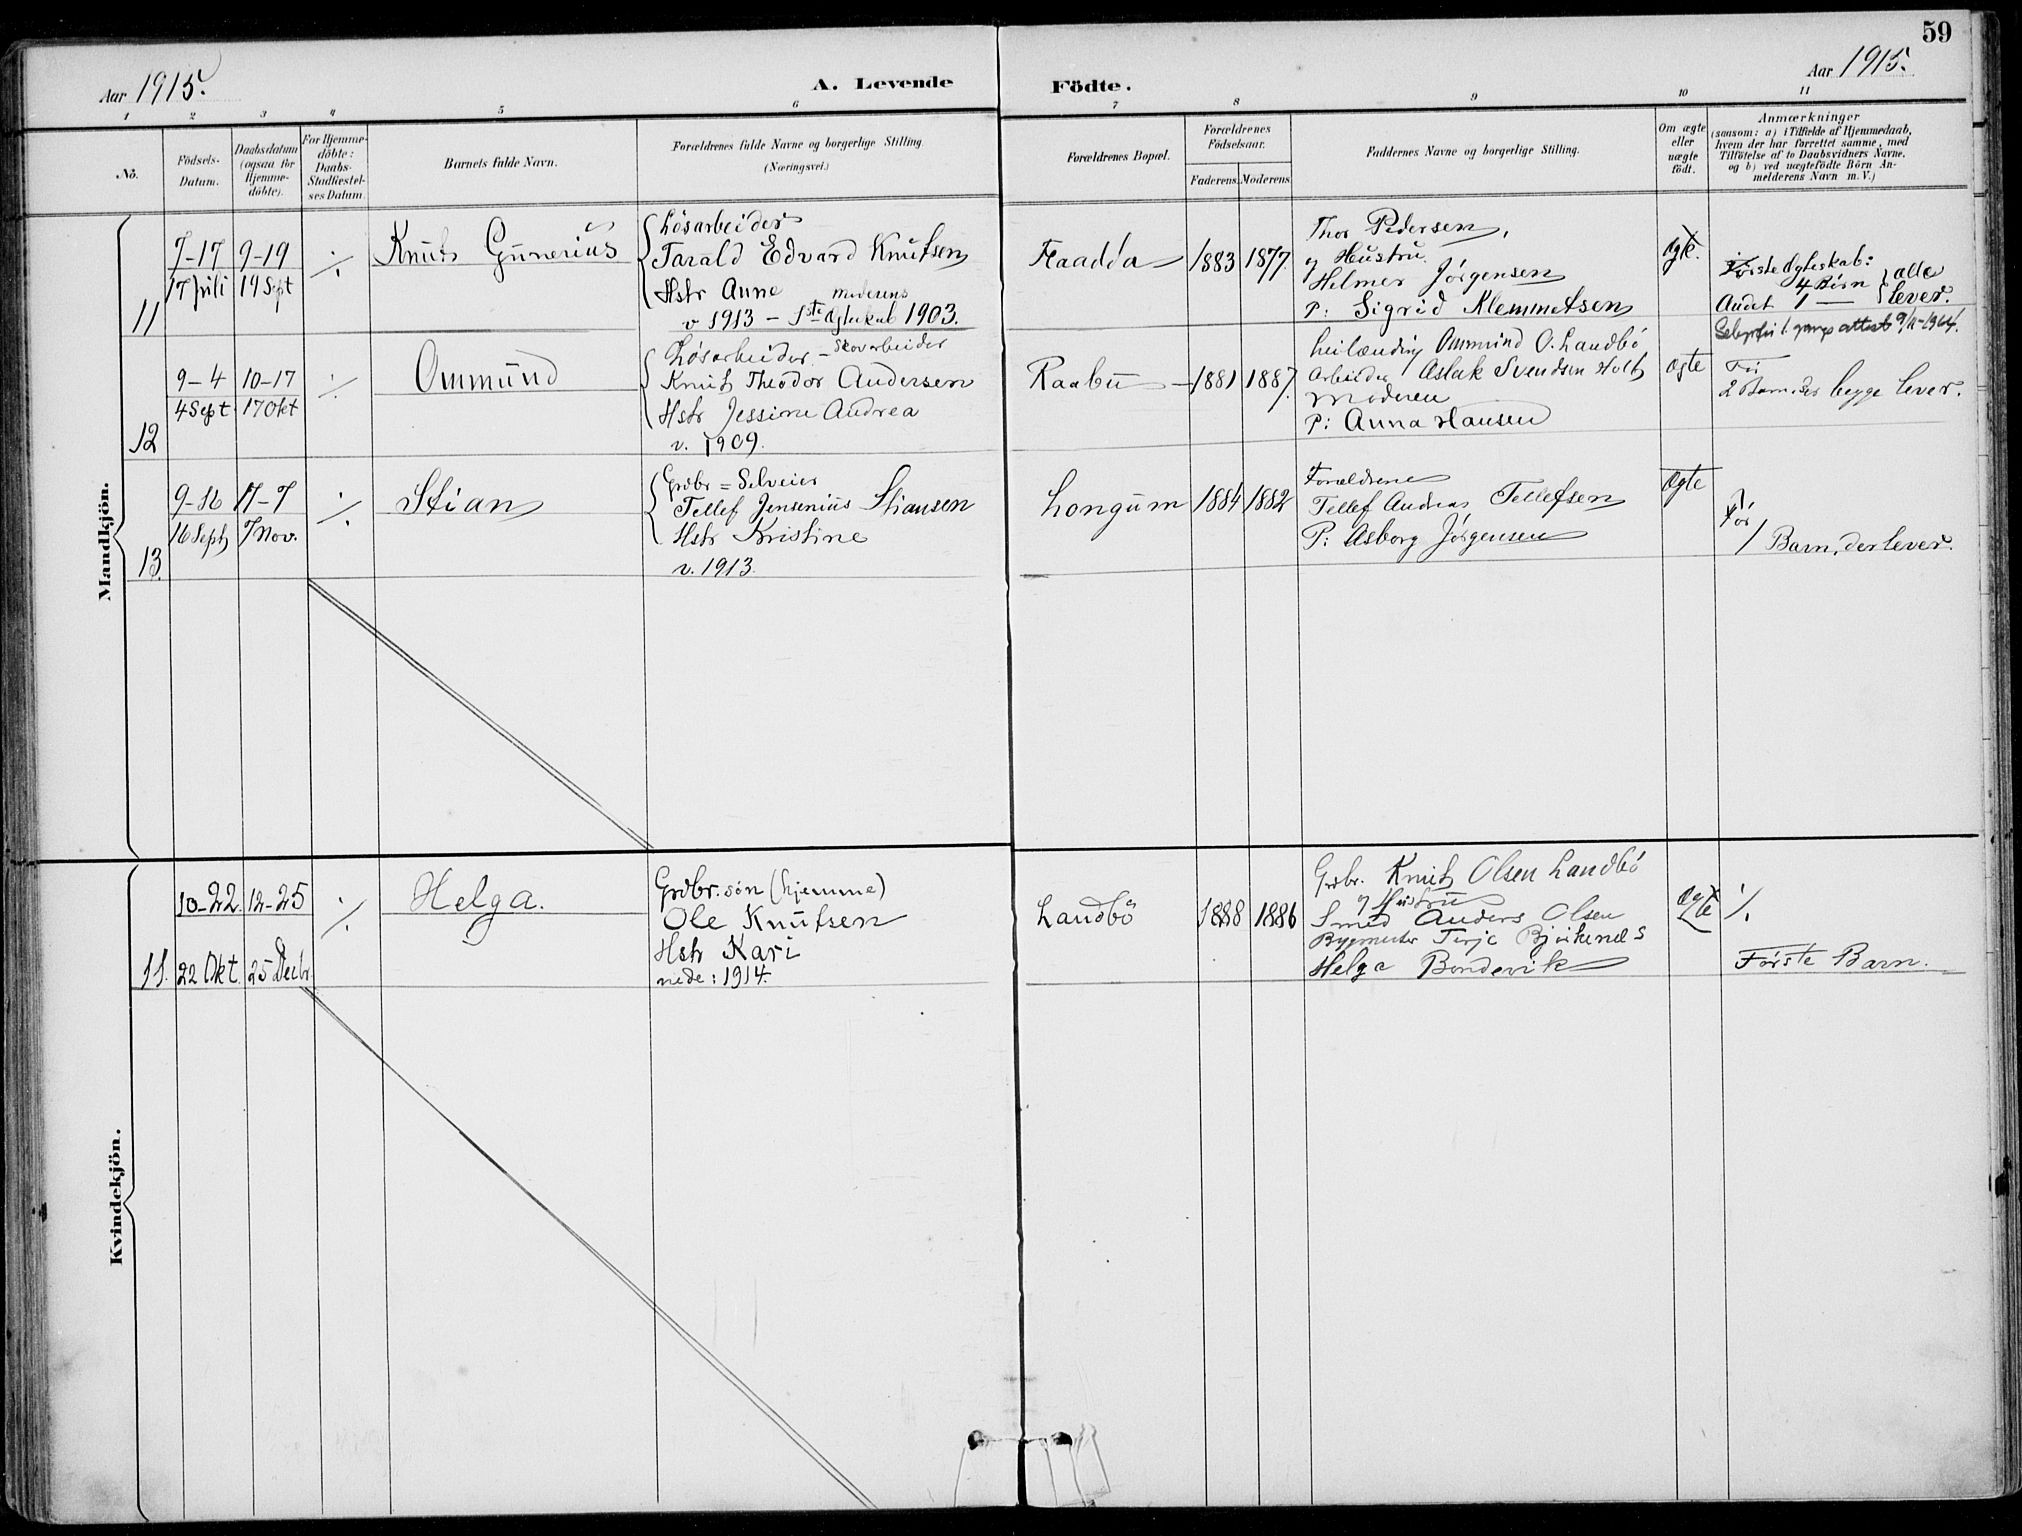 59
Aar 1915.
A. Levende Födte.
Aar 1915.
1 2 3 4 5 6 7 8 9 10 11
No.
Födsels-Datum.
Daabsdatum (ogsaa for Hjemme-döbte).
For Hjemme-döbte: Daabs-Stadfæstel-ses Datum.
Barnets fulde Navn.
Forældrenes fulde Navne og borgerlige Stilling.
(Næringsvei.)
Forældrenes Bopæl.
Forældrenes Födselsaar.
Faderens. Moderens.
Faddernes Navne og borgerlige Stilling.
Om ægte eller uægte födt.
Anmærkninger
(saasom: a) i Tilfælde af Hjemmedaab,
hvem der har forrettet samme, med
Tilföielse af to Daabsvidners Navne,
og b) ved uægtefödte Börn An-
melderens Navn m. V.)
Mandkjön.
11
7-17 9-19
17 Juli 19 Sept
./.
Knut Gunerius
Løsarbeider
Tarald Edvard Knutsen
Hstr Anne
v 1913 - 1ste moderens Ægteskab 1903.
Faadda
1883 1877
Thor Pedersen,
og Hustru
Helmer Jörgensen
P: Sigrid Klemmetsen
ægte.
Første Ægteskab:
4 Børn
Andet 1 —
alle lever.
attest 9/11-1964.
12
9-4 10-17
4 Sept 17 Okt
./.
Ommund
Løsarbeider - Skovarbeider
Knut Theodor Andersen
Hstr Jessine Andrea
v. 1909.
Raabu
1881 1887.
Ommund O. Landbö
Arbeider Aslak Svendsen Holt
Moderen
P: Anna Hansen
ægte
Før
2 Børn, der begge lever.
13.
9-16 11-7
16 Sept 7 Nov.
./.
Stian
Grdbr = Selveier
Tellef Jensenius Stiansen
Hstr Kristine
v. 1913
Longum
1884 1882
Forældrene
Tellef Andreas Tellefsen
P: Asborg Jörgensen
ægte
Før
1 Barn, der lever.
Kvindekjön.
11.
10-22 12-25
22 Okt. 25 Decbr
./.
Helga.
Grdbr. søn (hjemme)
Ole Knutsen
Hstr Kari
viede: 1914.
Landbö
1888 1886
Grdbr. Knut Olsen Landbö
og Hustru
Smed Anders Olsen
Bygmester Terje Bjorkenes
Helga Bondevik
ægte
./.
Første Barn.